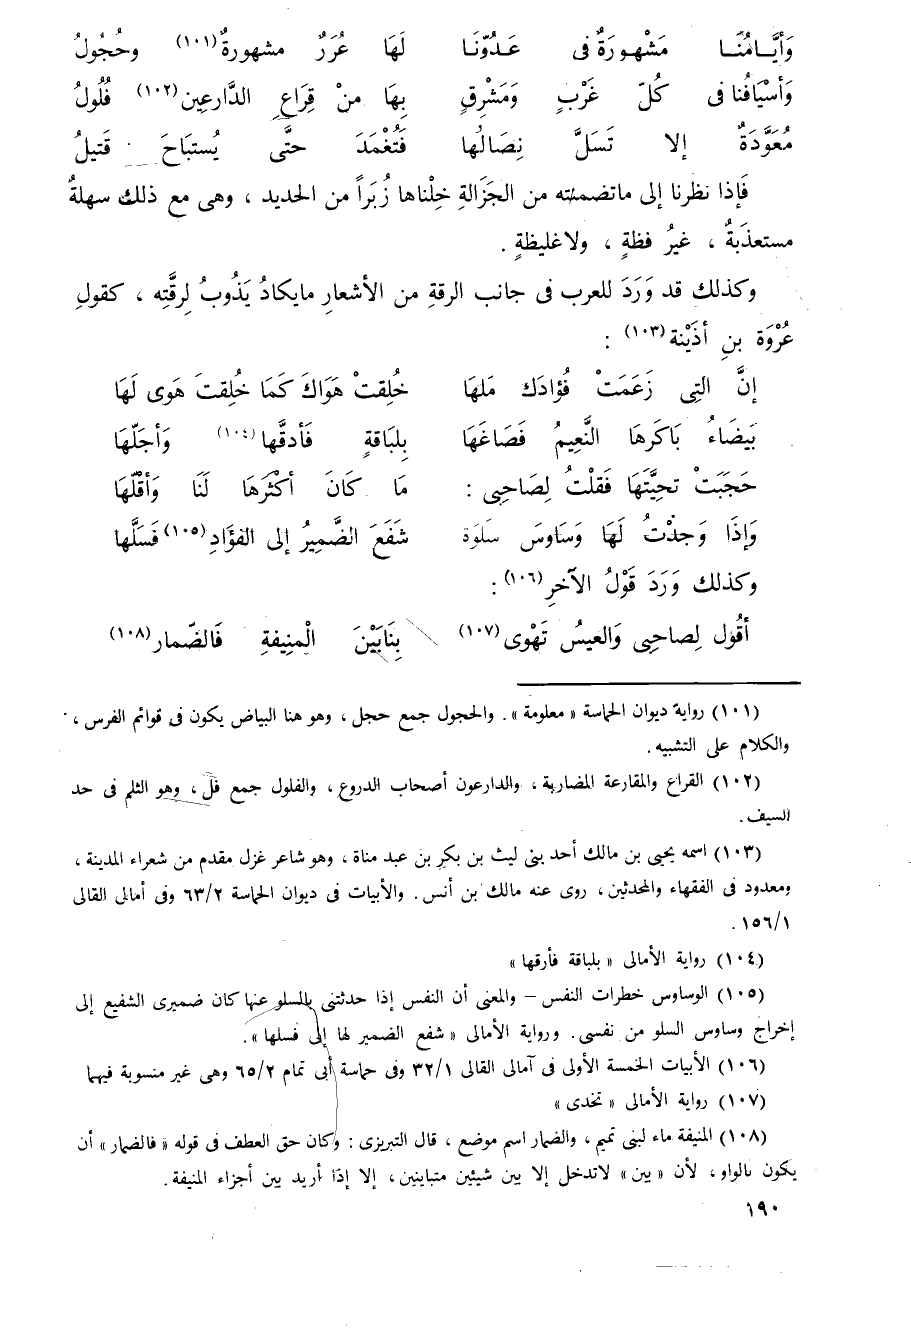 وَأيَّـامُنَّـا مَشْهـورَةٌ فى عَـدُوّنَـا لَهَا غُرَرٌ مشهورةٌ (١٠١) وحُجُولُ
وَأسْيَافُنا فى كُلّ غَرْبٍ وَمَشْرِقٍ بِهَا منْ قِرَاعِ الدَّارعِين (١٠٢) فُلُولُ
مُعَوَّدَةٌ إلا تَسَلَّ نِصَالُها فَتُغْمَدَ حتَّى يُستبَاحَ قَتيلُ
فَإذا نظرنا إلى ماتضمنته من الجَزَالةِ خِلْناها زُبَراً من الحديد ، وهى مع ذلك سهلةٌ
مستعذَبةٌ ، غيرُ فظةٍ ، ولاغليظةٍ .
وكذلك قد وَرَدَ للعرب فى جانب الرقةِ من الأشعارِ مايكادُ يَذُوبُ لِرقَّتِه ، كقولِ
عُرْوَة بنِ أذَيْنة (١٠٣) :
إنَّ التِى زَعَمَتْ فُؤادَك مَلها خُلِقتْ هَوَاكَ كَمَا خُلِقتَ هَوى لَهَا
بَيضَاءُ بَاكَرهَا النَّعِيمُ فَصَاغَهَا بِلبَاقةٍ فَأدقَّها (١٠٤) وَأجَلّهَا
حَجَبَتْ تحِيَّتَهَا فَقلْتُ لِصَاحِبى : مَا كَانَ أكْثَرَهَا لَنَا وَأقْلّهَا
وَإذَا وَجدْتُ لَهَا وَسَاوسَ سَلوَة شَفَعَ الضَّمِيرُ إلى الفؤَادِ (١٠٥) فَسَلَّها
وكذلك وَرَدَ قَوْلُ الآخرِ (١٠٦) :
أقُول لِصاحِبِى وَالعيسُ تَهْوى (١٠٧) بِنَابَيْنَ الْمنِيفةِ فَالضّمار (١٠٨)
(١٠١) رواية ديوان الحماسة « معلومة » . والحجول جمع حجل ، وهو هنا البياض يكون فى قوائم الفرس ،
والكلام على التشبيه .
(١٠٢) القراع والمقارعة المضاربة ، والدارعون أصحاب الدروع ، والفلول جمع فل ، وهو الثلم فى حد
السيف .
(١٠٣) اسمه يحيى بن مالك أحد بنى ليث بن بكر بن عبد مناة ، وهو شاعر غزل مقدم من شعراء المدينة ،
ومعدود فى الفقهاء والمحدثين ، روى عنه مالك بن أنس . والأبيات فى ديوان الحماسة ٦٣/٢ وفى أمالى القالى
١٥٦/١ .
(١٠٤) رواية الأمالى « بلباقة فأرقها »
(١٠٥) الوساوس خطرات النفس – والمعنى أن النفس إذا حدثتنى بالسلو عنها كان ضميرى الشفيع إلى
إخراج وساوس السلو من نفسى . ورواية الأمالى « شفع الضمير لها إلى فسلها » .
(١٠٦) الأبيات الخمسة الأولى فى آمالى القالى ٣٢/١ وفى حماسة أبى تمام ٦٥/٢ وهى غير منسوبة فيهما
(١٠٧) رواية الأمالى « تخدى »
(١٠٨) المنيفة ماء لبنى تميم ، والضمار اسم موضع ، قال التبريزى : وكان حق العطف فى قوله « فالضمار » أن
يكون بالواو ، لأن « بين » لاتدخل إلا بين شيئين متباينين ، إلا إذا أريد بين أجزاء المنيفة .
١٩٠